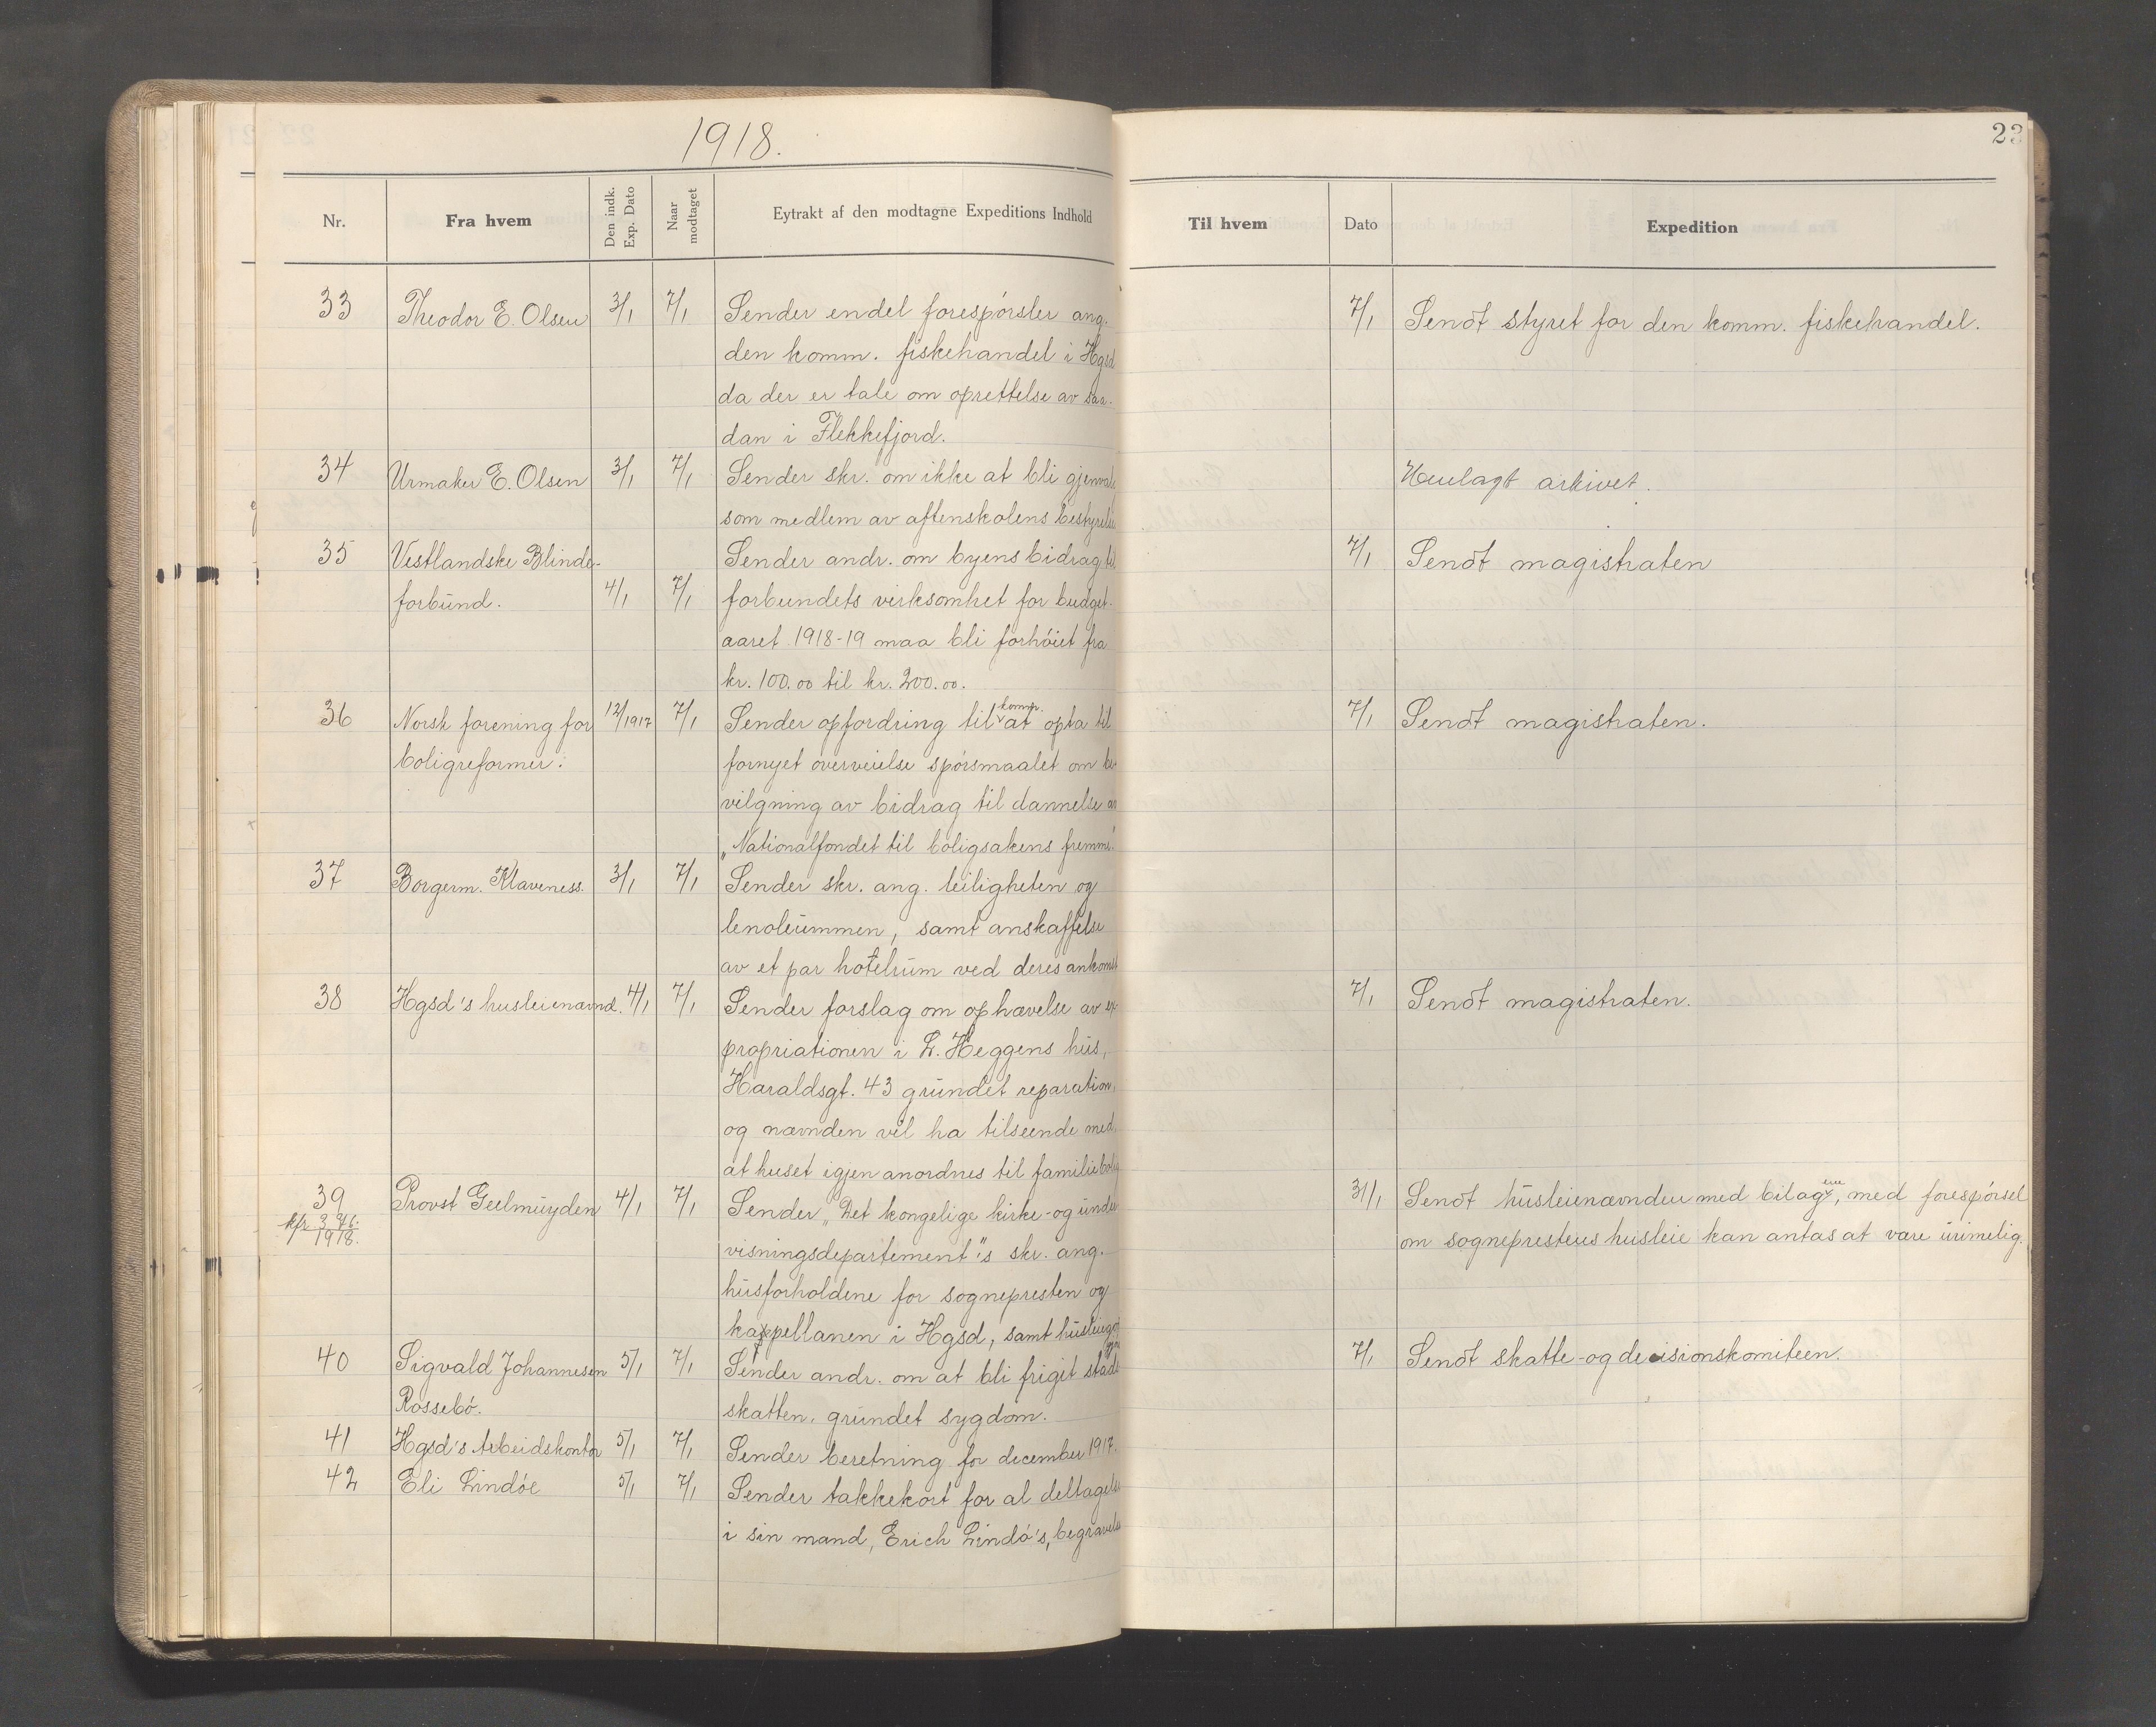 1918.
23
Nr.
Fra hvem
Den indk.
Exp. Dato
Naar
modtaget
Eytrakt af den modtagne Expeditions Indhold
Til hvem
Dato
Expedition
33 Theodor E. Olsen 3/1 7/1 Sender endel forespørsler ang. 7/1 Sendt styret for den komm. fiskehandel.
den komm. fiskehandel i Hgsd
da der er tale om oprettelse av saa-
dan i Flekkefjord.
34 Urmaker E. Olsen 3/1 7/1 Sender skr. om ikke at bli Henlagt arkivet.
som medlem av aftenskolens
35 Vestlandske Blinde- Sender andr. om byens bidrag til 7/1 Sendt magistraten
forbund. 4/1 7/1 forbundets virksomhet for budget-
aaret 1918-19 maa bli forhöiet fra
kr. 100.00 til kr. 200.00.
36 Norsk forening for 12/1917 7/1 Sender opfordring til komm. at opta til 7/1 Sendt magistraten.
boligreformer. fornyet overveielse spörsmaalet om be-
vilgning av bidrag til dannelse av
"Nationalfondet til boligsakens fremme".
37 Borgerm. Klaveness. 3/1 7/1 Sender skr. ang. leiligheten og
lenoleummen, samt anskaffelse
av et par hotelrum ved deres ankomst
38 Hgsd's husleienævnd. 4/1 7/1 Sender forslag om ophævelse av ex- 7/1 Sendt magistraten.
propriationen i L. Heggens hus,
Haraldsgt. 43 grundet reparation,
og nævnden vil ha tilseende med,
at huset igjen anordnes til familiebolig
39 Provst Geelmuyden 4/1 7/1 Sender "Det kongelige kirke- og under 31/1 Sendt husleienævnden med bilagene, med forespørsel
kfr 376.
1918.
visningsdepartement"s skr. ang. om sogneprestens husleie kan antas at være urimelig.
husforholdene for sognepresten og
kappellanen i Hgsd, samt
40 Sigvald Johannesen 5/1 7/1 Sender andr. om at bli friget 7/1 Sendt skatte- og decisionskomiteen.
Rossebö. skatten, grundet sygdom.
41 Hgsd's Arbeidskontor 5/1 7/1 Sender beretning for december 1917.
42 Eli Lindöe 5/1 7/1 Sender takkekort for al deltagelse
i sin mand, Erich Lindö's, begravelse